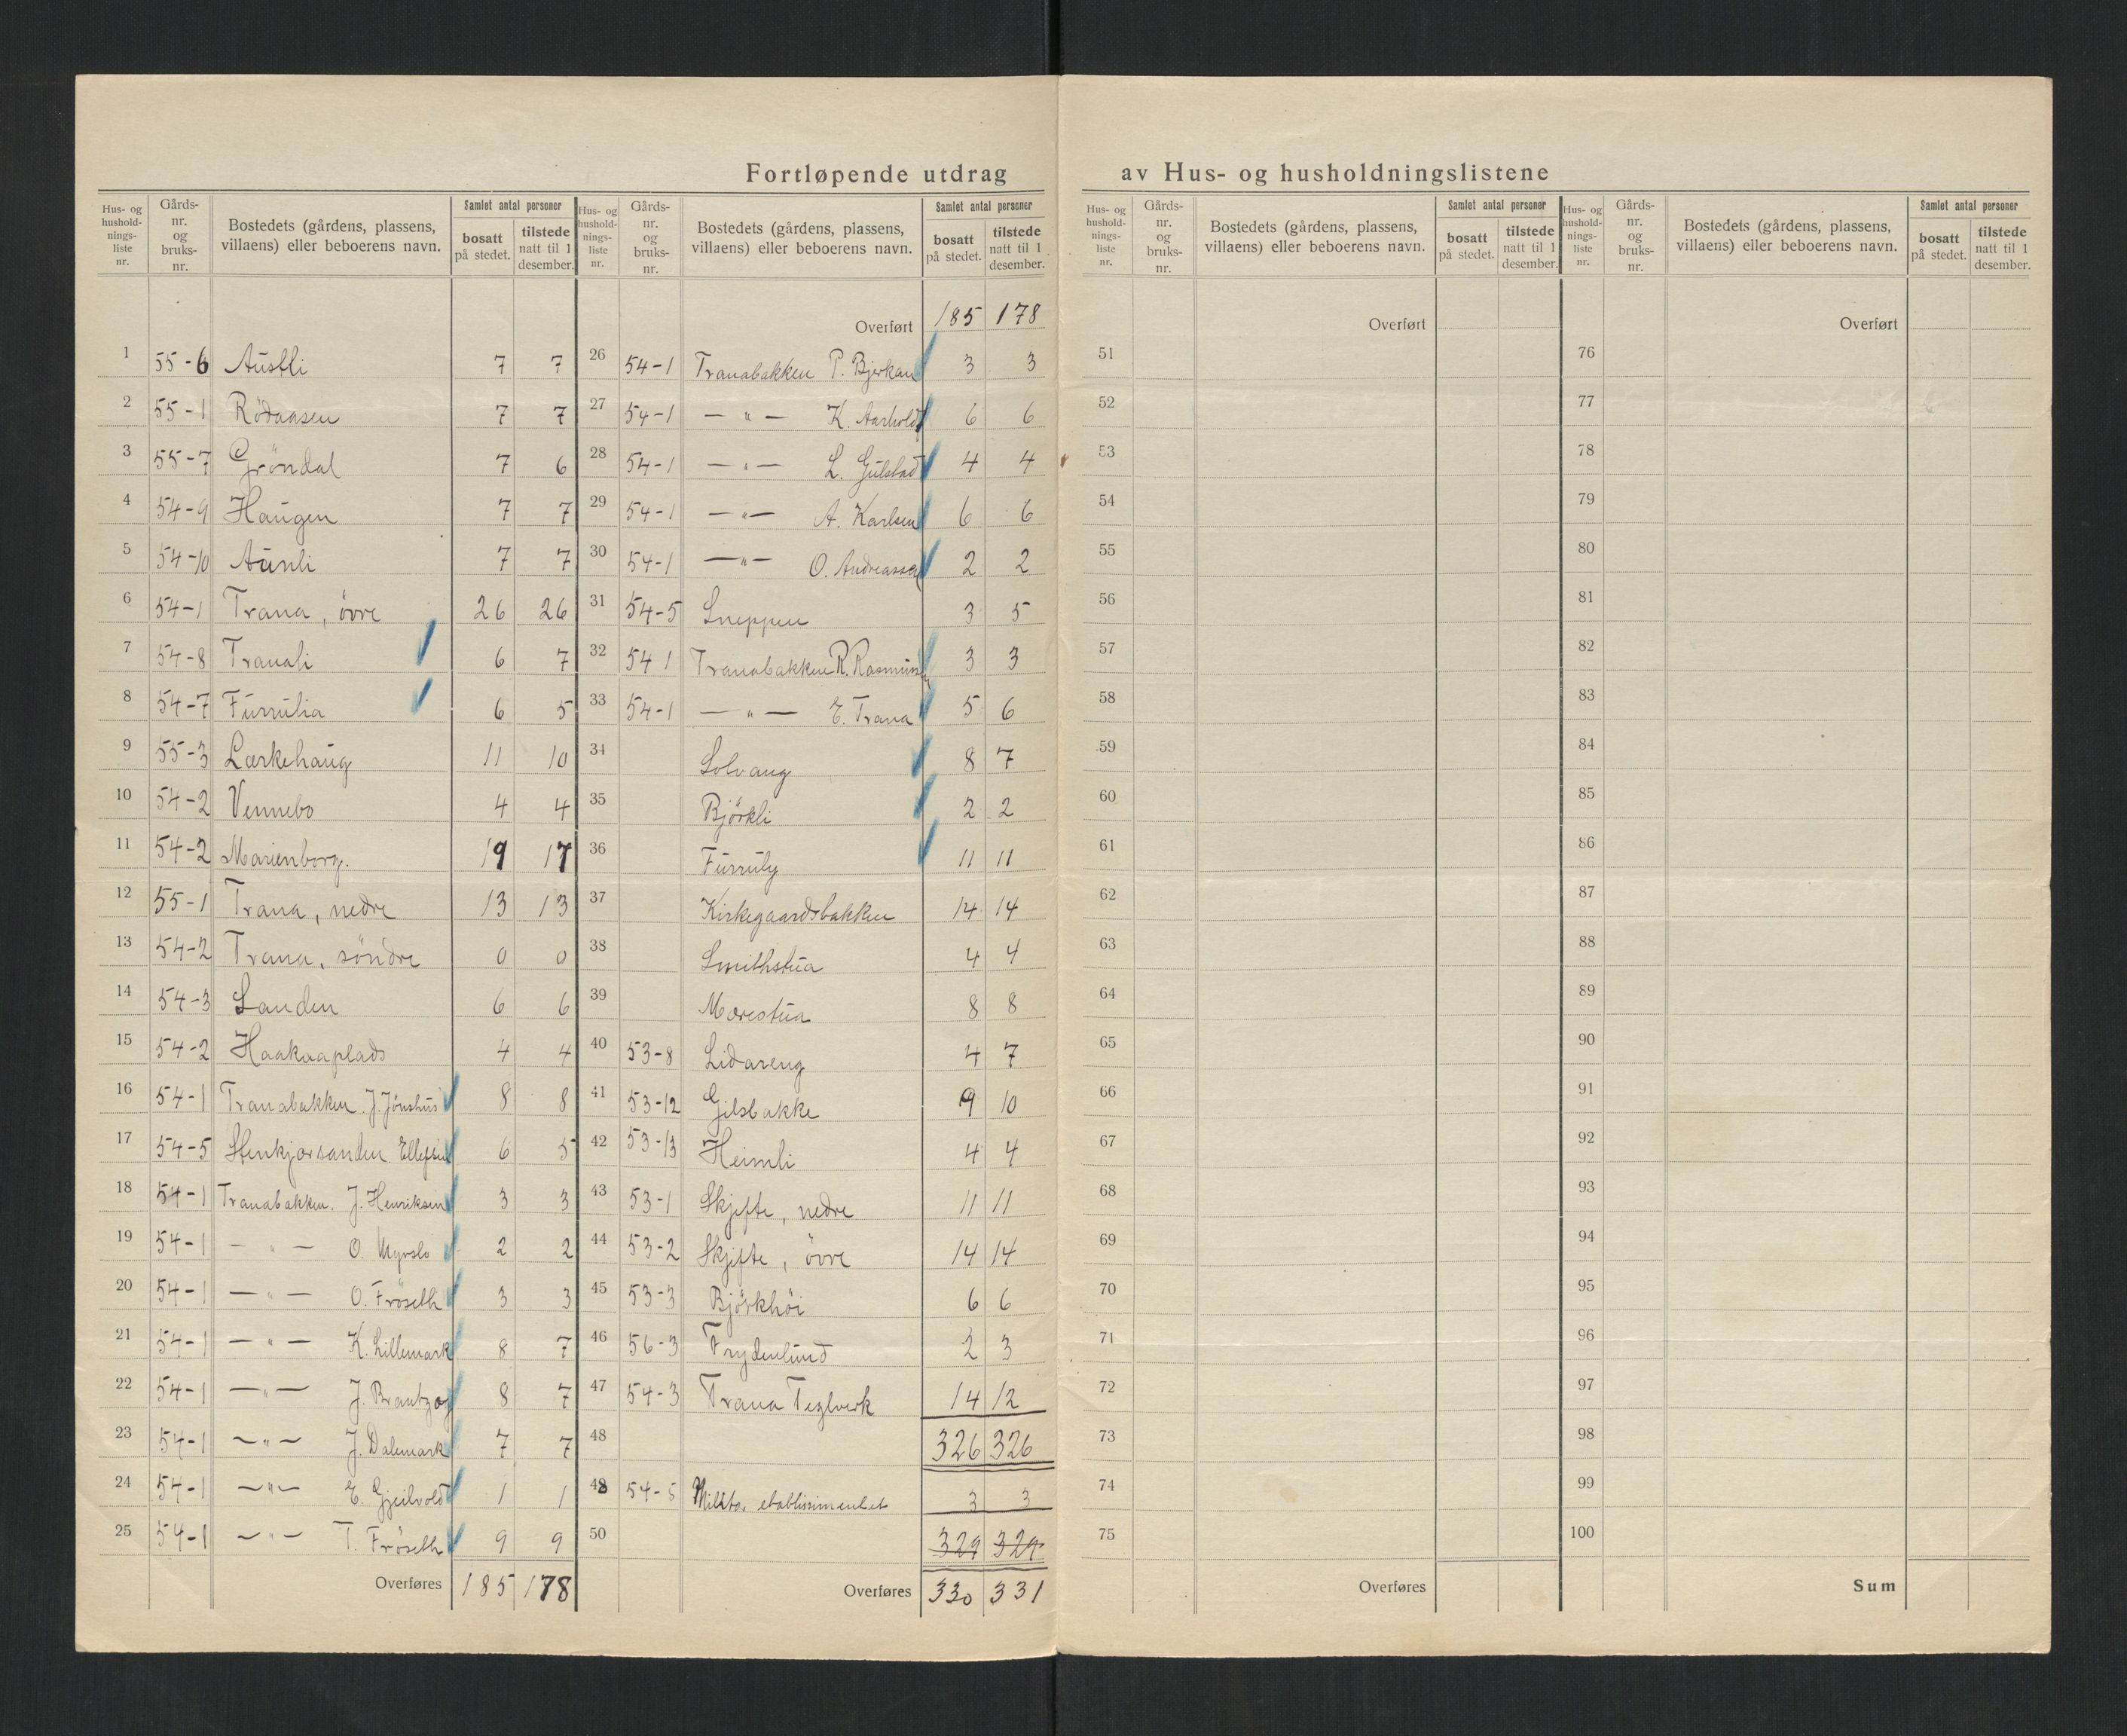 Fortløpende utdrag av Hus- og husholdningslistene
Hus- og hushold-nings-liste nr. | Gårds-nr. og bruks-nr. | Bostedets (gårdens, plassens, villaens) eller beboerens navn. | Samlet antal personer | bosatt på stedet. | tilstede natt til 1 desember.
1 55-6 Austli 7 7
2 55-1 Rödaasen 7 7
3 55-7 Gröndal 7 6
4 54-9 Haugen 7 7
5 54-10 Aunli 7 7
6 54-1 Trana, övre 26 26
7 54-8 Tranali 6 7
8 54-7 Furrulia 6 5
9 55-3 Lærkehaug 11 10
10 54-2 Vennebo 4 4
11 54-2 Marienborg. 19 17
12 55-1 Trana, nedre 13 13
13 54-2 Trana, söndre 0 0
14 54-3 Sanden 6 6
15 54-2 Haakaaplads 4 4
16 54-1 Tranabakken. J. Jönshus 8 8
17 54-5 Stenkjærsanden. Ellefsen 6 5
18 54-1 Tranabakken. J. Henriksen 3 3
19 54-1 — " — O. Myrslo 2 2
20 54-1 — " — O. Fröseth 3 3
21 54-1 — " — K. Lillemark 8 7
22 54-1 — " — J. Brantzæg 8 7
23 54-1 — " — J. Dalemark 7 7
24 54-1 — " — E. Gjeilvold 1 1
25 54-1 — " — T. Fröseth 9 9
Overføres 185 178
Hus- og hushold-nings-liste nr. | Gårds-nr. og bruks-nr. | Bostedets (gårdens, plassens, villaens) eller beboerens navn. | Samlet antal personer | bosatt på stedet. | tilstede natt til 1 desember.
Overført 185 178
26 54-1 Tranabakken P. Bjerkan 3 3
27 54-1 — " — K. Aarhold 6 6
28 54-1 — " — L. Gulstad 4 4
29 54-1 — " — A. Karlsen 6 6
30 54-1 — " — O. Andreassen 2 2
31 54-5 Sneppen 3 5
32 54 1 Tranabakken R. Rasmussen 3 3
33 54-1 — " — E. Trana 5 6
34 Solvang 8 7
35 Björkli 2 2
36 Furruly 11 11
37 Kirkegaardsbakken 14 14
38 Smithstua 4 4
39 Mærestua 8 8
40 53-8 Lidareng 4 7
41 53-12 Gilsbakke 9 10
42 53-13 Heimli 4 4
43 53-1 Skjefte, nedre 11 11
44 53-2 Skjefte, övre 14 14
45 53-3 Björkhöi 6 6
46 56-3 Frydenlund 2 3
47 54-3 Trana Teglverk 14 12
48 326 326
48 54-5 Militær etablissimentet 3 3
50 329 329
Overføres 330 331
Hus- og hushold-nings-liste nr. | Gårds-nr. og bruks-nr. | Bostedets (gårdens, plassens, villaens) eller beboerens navn. | Samlet antal personer | bosatt på stedet. | tilstede natt til 1 desember.
Overført
51
52
53
54
55
56
57
58
59
60
61
62
63
64
65
66
67
68
69
70
71
72
73
74
75
Overføres
Hus- og hushold-nings-liste nr. | Gårds-nr. og bruks-nr. | Bostedets (gårdens, plassens, villaens) eller beboerens navn. | Samlet antal personer | bosatt på stedet. | tilstede natt til 1 desember.
Overført
76
77
78
79
80
81
82
83
84
85
86
87
88
89
90
91
92
93
94
95
96
97
98
99
100
Sum